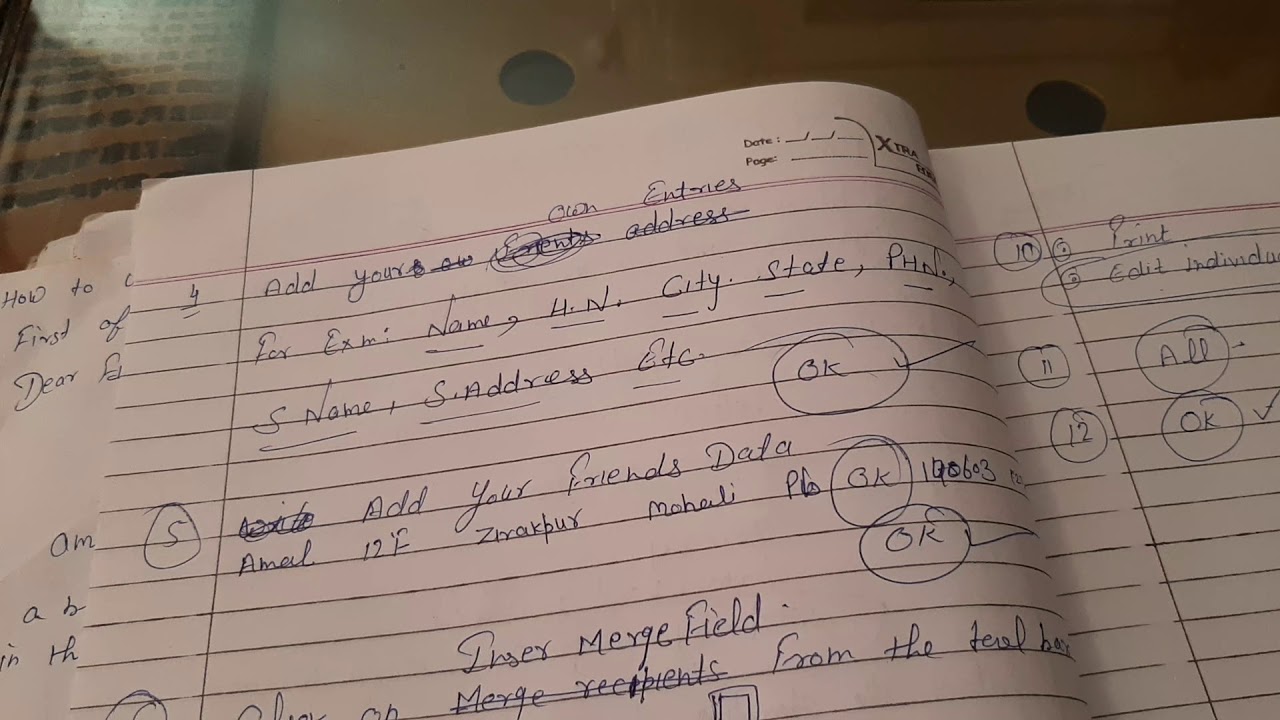 Date : __/__/__
Page: ____
XTRA
Own Entries
4 Add your address
For Exm: Name, H.N. City. State, PHN.,
S Name, S.Address Etc. OK
5 Add Your Friends Data OK
Amal 12 F Zirakpur Mohali Pb 140603
OK
Inser Merge Field.
on Merge recipients From the tool bar
How to
First of
Dear
am
a b
in th
10 Print
Edit individu
11 All
12 OK